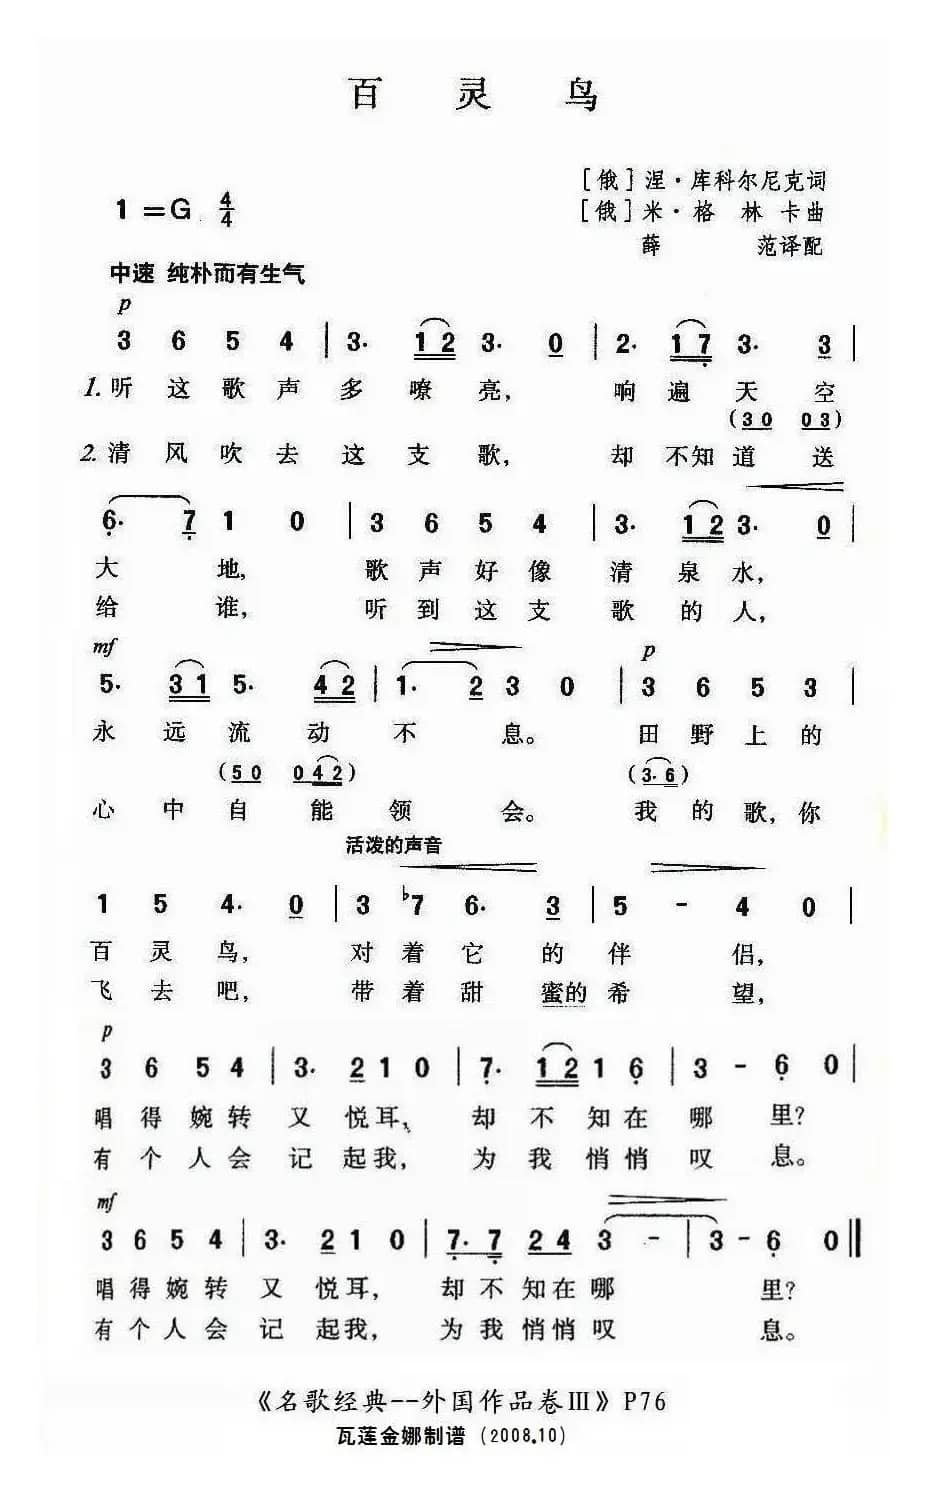 百灵鸟
[俄]涅·库科尔尼克词
1=G 4/4
[俄]米·格林卡曲
薛范译配
中速 纯朴而有生气
p
3 6 5 4 | 3. 1 2 3. 0 | 2. 1 7 3. 3 |
1. 听这歌声多嘹亮, 响遍天空
(3 0 0 3)
2. 清风吹去这支歌, 却不知道送
6. 7 1 0 | 3 6 5 4 | 3. 1 2 3. 0 |
大地, 歌声好像清泉水,
给谁, 听到这支歌的人,
mf p
5. 3 1 5. 4 2 | 1. 2 3 0 | 3 6 5 3 |
永远流动不息。 田野上的
(5 0 0 4 2) (3. 6)
心中自能领会。 我的歌,你
活泼的声音
1 5 4. 0 | 3 ♭7 6. 3 | 5 - 4 0 |
百灵鸟, 对着它的伴侣,
飞去吧, 带着甜蜜的希望,
p
3 6 5 4 | 3. 2 1 0 | 7. 1 2 1 6 | 3 - 6 0 |
唱得婉转又悦耳、 却不知在哪里?
有个人会记起我, 为我悄悄叹息。
mf
3 6 5 4 | 3. 2 1 0 | 7. 7 2 4 3 - | 3 - 6 0 ‖
唱得婉转又悦耳, 却不知在哪里?
有个人会记起我, 为我悄悄叹息。
《名歌经典--外国作品卷Ⅲ》P76
瓦莲金娜制谱 (2008.10)